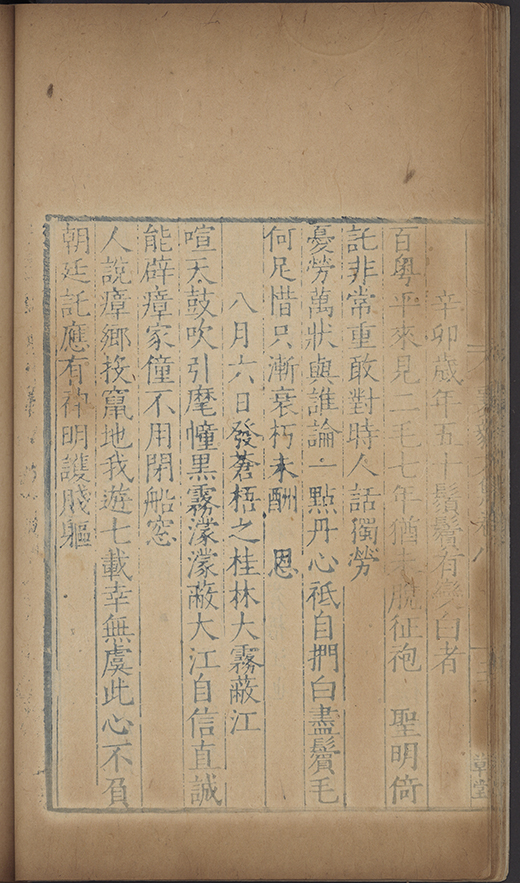 辛卯歲年五十鬚鬢有變白者
百粤平來見二毛七年猶未脫征袍 聖明倚
託非常重敢對時人話獨勞
憂勞萬狀與誰論一點丹心祗自捫白盡鬢毛
何足惜只漸衰朽未酬 恩
八月六日發蒼梧之桂林大霧蔽江
喧天鼓吹引麾幢黑霧濛濛蔽大江自信直誠
能辟瘴家僮不用閉船窓
人說瘴鄉投竄地我遊七載幸無虞此心不負
朝廷託應有神明護賤軀
草堂